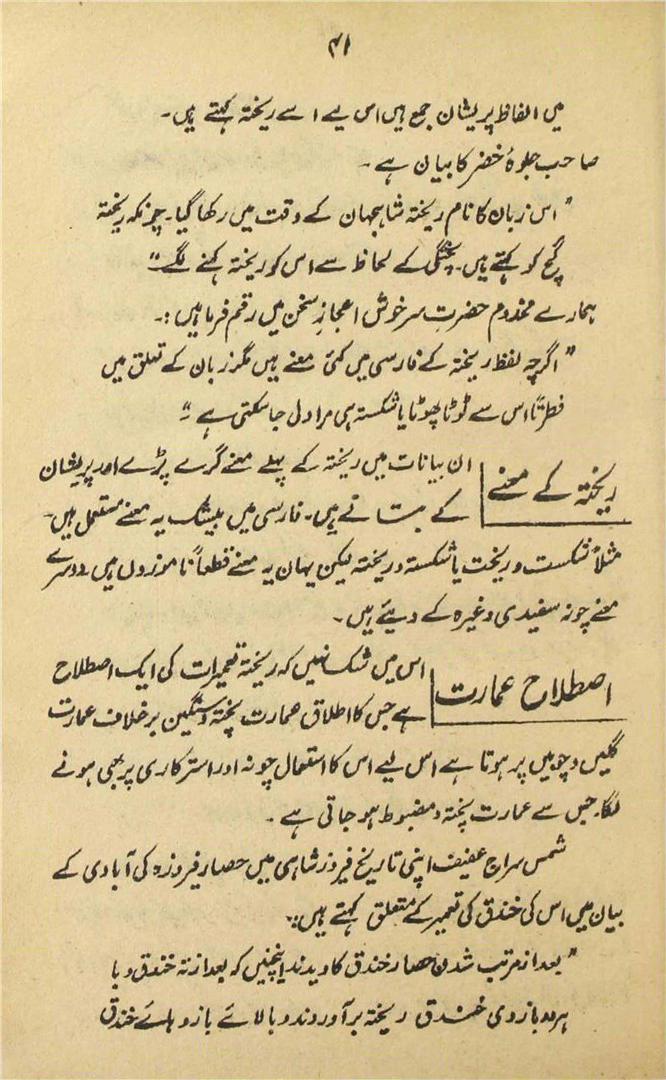 ۴۱
میں الفاظ پریشان جمع ہیں اس لیے اسے ریختہ کہتے ہیں۔
صاحب جلوۂ خضر کا بیان ہے۔
"اس زبان کا نام ریختہ شاہجہان کے وقت میں رکھا گیا۔ چونکہ ریختہ
گچ کو کہتے ہیں۔ پختگی کے لحاظ سے اس کو ریختہ کہنے لگے"
ہمارے مخدوم حضرت سرخوش اعجازِ سخن میں رقم فرما ہیں:۔
"اگرچہ لفظ ریختہ کے فارسی میں کئی معنے ہیں مگر زبان کے تعلق میں
فطرتاً اس سے ٹوٹا پھوٹا یا شکستہ ہی مراد لی جا سکتی ہے"
ریختہ کے معنے
ان بیانات میں ریختہ کے پہلے معنے گرے پڑے اور پریشان
کے بتائے ہیں۔ فارسی میں بیشک یہ معنے مستعمل ہیں۔
مثلاً شکست و ریخت یا شکستہ و ریختہ لیکن یہاں یہ معنے قطعاً ناموزوں ہیں دوسرے
معنے چونہ سفیدی وغیرہ کے دیئے ہیں۔
اصطلاح عمارت
اس میں شک نہیں کہ ریختہ تعمیرات کی ایک اصطلاح
ہے جس کا اطلاق عمارت پختہ و سنگین برخلاف عمارت
گلیں و چوبیں پر ہوتا ہے اس لیے اس کا استعمال چونہ اور استرکاری پر بھی ہونے
لگا۔ جس سے عمارت پختہ و مضبوط ہو جاتی ہے۔
شمس سراج عفیف اپنی تاریخ فیروز شاہی میں حصار فیروزہ کی آبادی کے
بیان میں اس کی خندق کی تعمیر کے متعلق کہتے ہیں:۔
"بعد از مرتب شدن حصار خندق کاویدند اینچنیں کہ بعد از تہ خندق و با
ہر دو بازوی خندق ریختہ برآوردند و بالائے بازو ہائے خندق